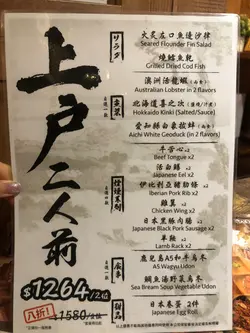 上戶二人前
サラダ
大炙左口魚邊沙律
Seared Flounder Fin Salad
燒鱈魚乾
Grilled Dried Cod Fish
澳洲活龍蝦 (兩食)
Australian Lobster in 2 flavors
北海道喜之次
Hokkaido Kinki (Salted/Sauce)
愛知縣白象拔蚌 (兩食)
Aichi White Geoduck (in 2 flavors)
牛舌心 x2
Beef Tongue x2
活白鱔 x2
Japanese Eel x2
伊比利亞豬肋條 x2
Iberian Pork Rib x2
雞翼 x2
Chicken Wing x2
日本黑豚肉腸 x2
Japanese Black Pork Sausage x2
羊鞍 x2
Lamb Rack x2
鹿兒島A5和牛烏冬
A5 Wagyu Udon
鯛魚湯野菜烏冬
Sea Bream Soup Vegetable Udon
甜品
日本卷蛋 2件
Japanese Egg Roll
$1264/2位
八折!
1580/2位